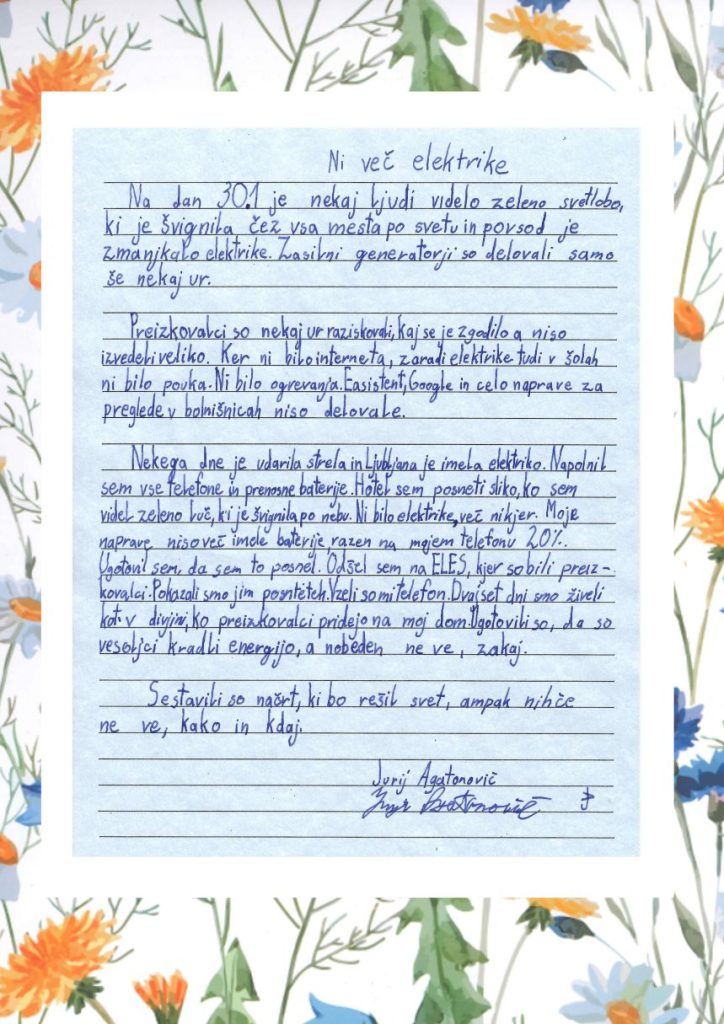 Ni več elektrike
Na dan 30.1 je nekaj ljudi videlo zeleno svetlobo,
ki je švignila čez vsa mesta po svetu in povsod je
zmanjkalo elektrike. Zasilni generatorji so delovali samo
še nekaj ur.
Preizkovalci so nekaj ur raziskovali, kaj se je zgodilo a niso
izvedeli veliko. Ker ni bilo interneta, zaradi elektrike tudi v šolah
ni bilo pouka. Ni bilo ogrevanja. Easistent, Google in celo naprave za
preglede v bolnišnicah niso delovale.
Nekega dne je udarila strela in Ljubljana je imela elektriko. Napolnil
sem vse telefone in prenosne baterije. Hotel sem posneti sliko, ko sem
videl zeleno luč, ki je švignila po nebu. Ni bilo elektrike, več nikjer. Moje
naprave niso več imele baterije razen na mojem telefonu 20%.
Ugotovil sem, da sem to posnel. Odšel sem na ELES, kjer so bili preiz-
kovalci. Pokazali smo jim posnetek. Vzeli so mi telefon. Dvajset dni smo živeli
kot v divjini, ko preizkovalci pridejo na moj dom. Ugotovili so, da so
vesoljci kradli energijo, a nobeden ne ve, zakaj.
Sestavili so načrt, ki bo rešil svet, ampak nihče
ne ve, kako in kdaj.
Jurij Agatonovič